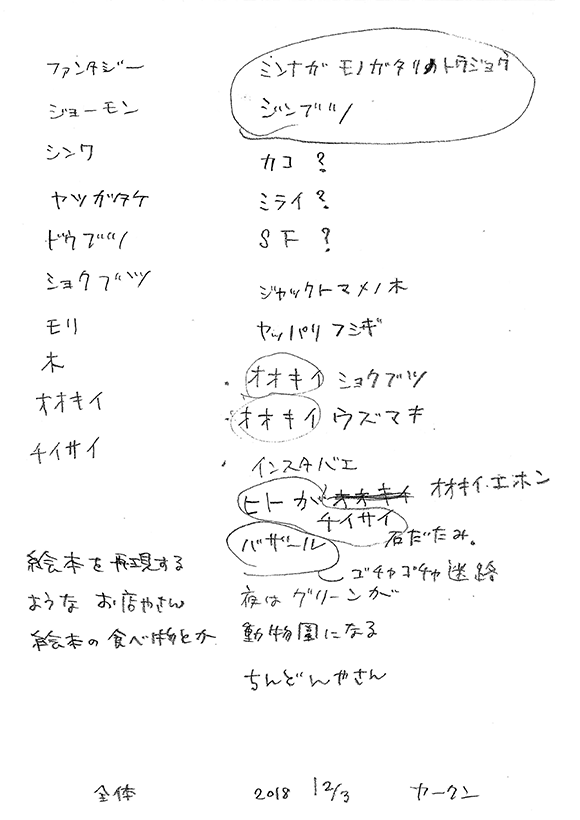 ファンタジー
ジョーモン
シンワ
ヤツガタケ
ドウブツ
ショクブツ
モリ
木
オオキイ
チイサイ
絵本を再現する
ような お店やさん
絵本の食べ物とか
ミンナガ モノガタリのトウジョウ
ジンブツ
カコ ?
ミライ ?
SF ?
ジャックトマメノ木
ヤッパリ フシギ
・オオキイ ショクブツ
・オオキイ ウズマキ
・インスタバエ
ヒトが オオキイ オオキイ・エホン
チイサイ
バザール 石だたみ。
ゴチャゴチャ迷路
夜は グリーンが
動物園になる
ちんどんやさん
全体 2018 12/3